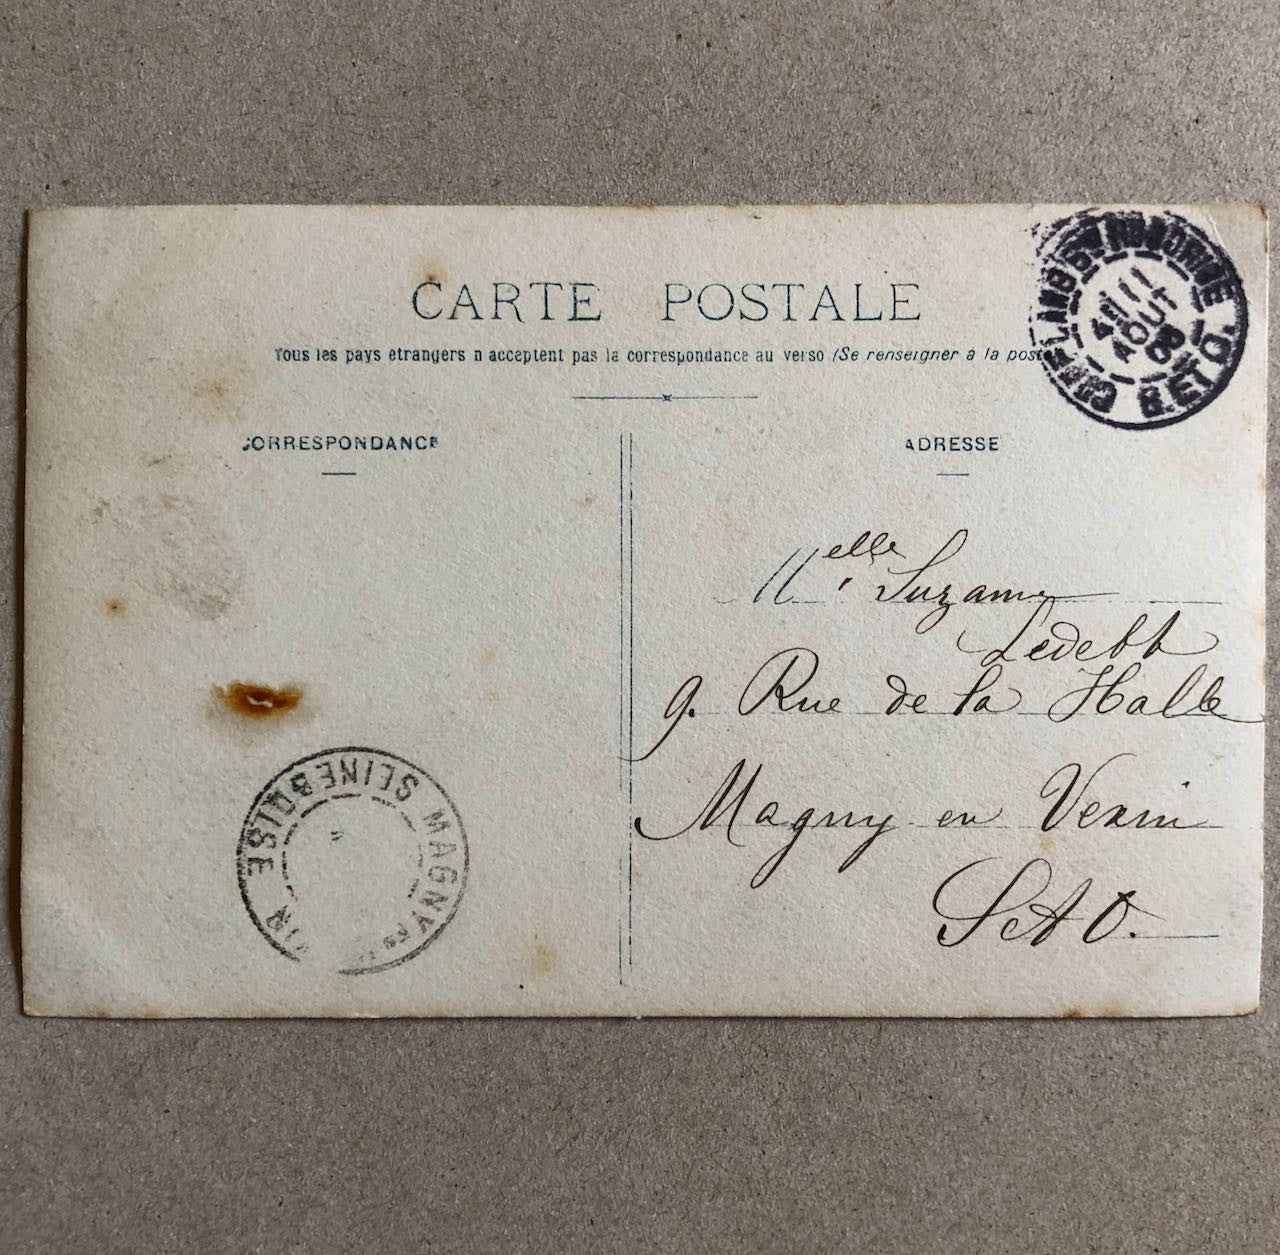 CARTE POSTALE
Tous les pays etrangers n acceptent pas la correspondance au verso (Se renseigner à la post
CORRESPONDANCE
ADRESSE
CONFLANS Ste HONORINE
11
AOUT
S. ET O.
Melle Suzanne
9. Rue de la Halle
Magny en Vexin
S et O.
MAGNY EN
SEINE & OISE